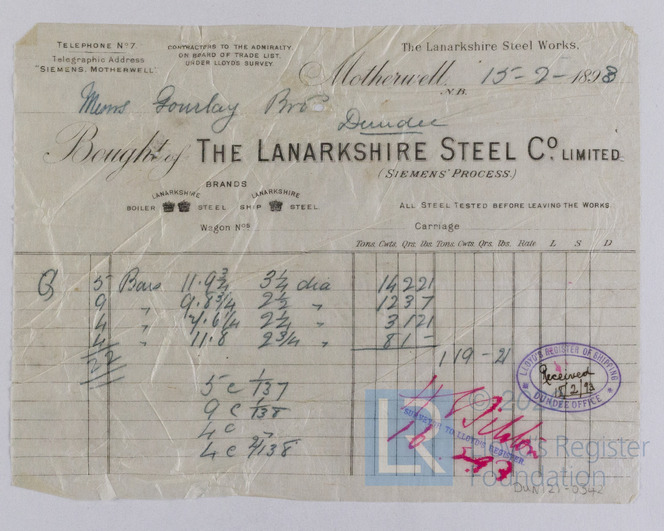 TELEPHONE Nº 7.
Telegraphic Address
"SIEMENS, MOTHERWELL"
CONTRACTORS TO THE ADMIRALTY
ON BOARD OF TRADE LIST.
UNDER LLOYDS SURVEY.
The Lanarkshire Steel Works,
Motherwell, 15-2-1893
N.B.
Messrs Gourlay Bros
Dundee
Bought of THE LANARKSHIRE STEEL Cº LIMITED.
(SIEMENS' PROCESS.)
BRANDS
LANARKSHIRE LANARKSHIRE
BOILER STEEL SHIP STEEL
ALL STEEL TESTED BEFORE LEAVING THE WORKS.
Wagon Nos Carriage
Tons. Cwts. Qrs. lbs. Tons. Cwts. Qrs. lbs. Rate L S D
5 Bars 11.9¾ 3¼ dia 14 2 21
9 " 9.8¾ 2½ " 12 3 7
4 " 2¼ " 3 1 21
4 " 11.8 2¾ " 8 1 -
22
1 19 - 21
5 C 1/137
9 C 1/138
4 C "
4 C 2/138
LLOYD'S REGISTER OF SHIPPING
Received
18/2/93
DUNDEE OFFICE
SURVEYOR TO LLOYD'S REGISTER.
16 2 93
LR
Lloyd's Register
Foundation